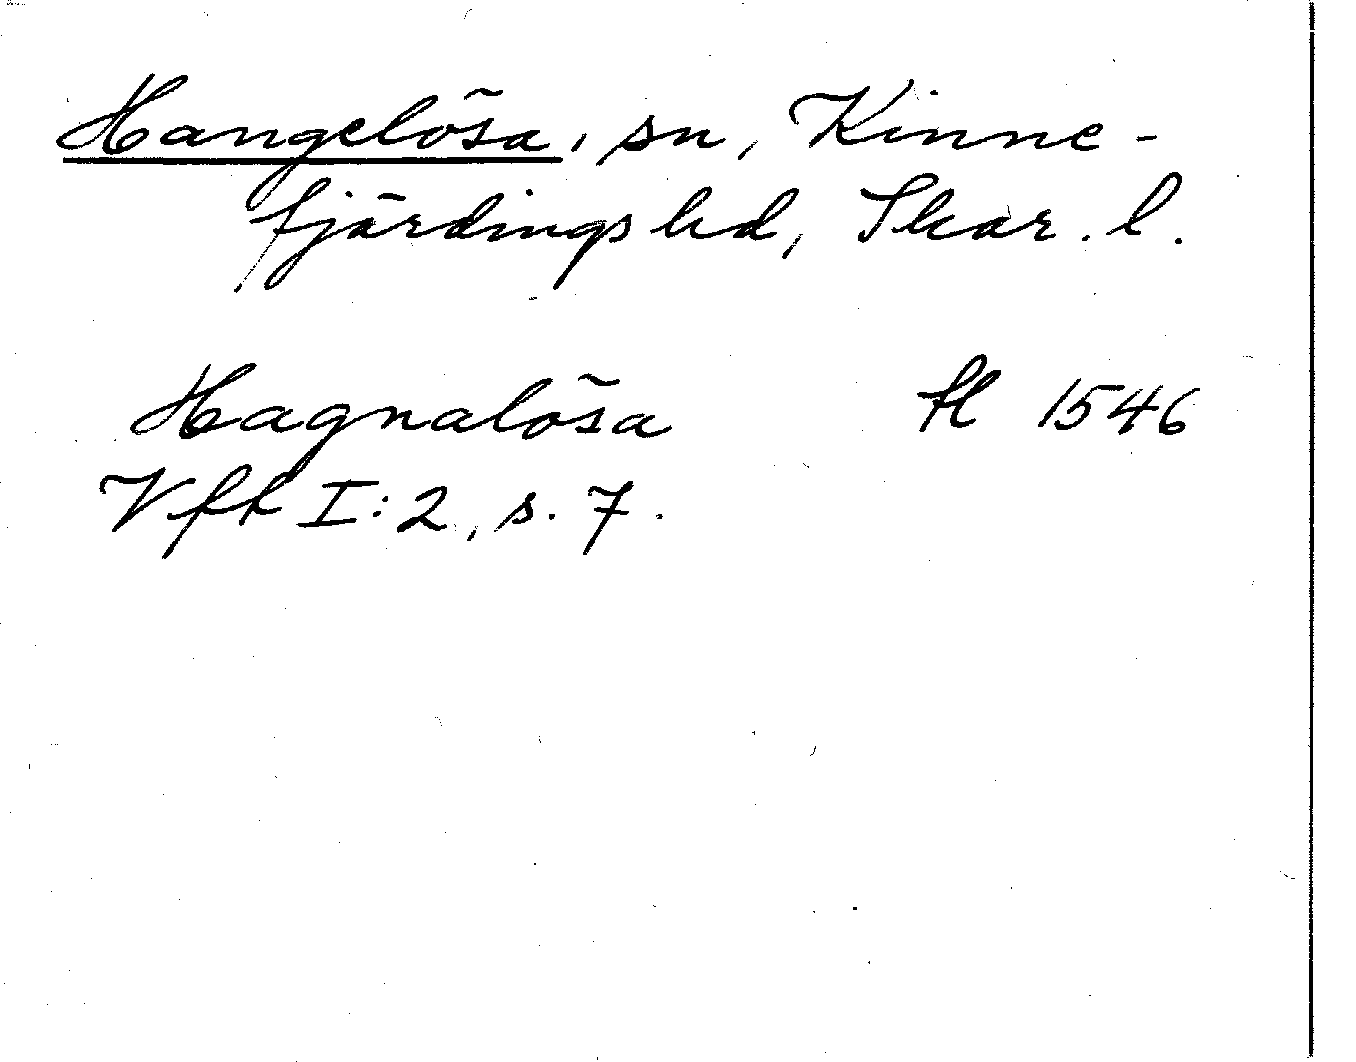 Hangelösa, sn, Kinne-
fjärdings hd, Skar. l.
Hagnalösa 1546
Vfh I:2, s. 7.